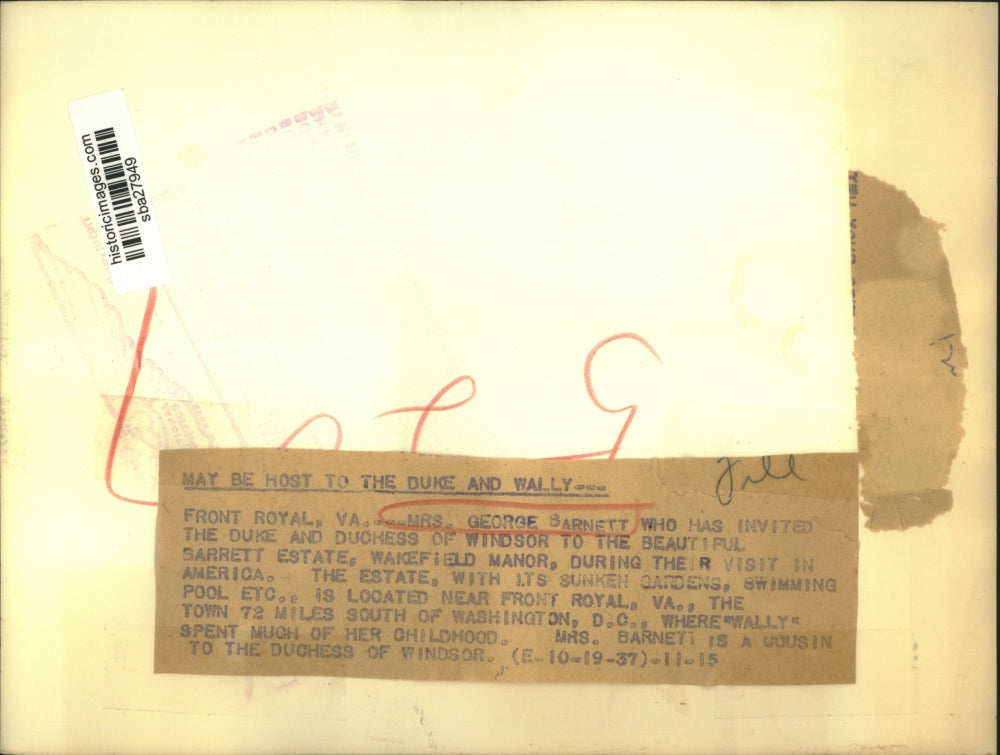 historicimages.com
sba27949
File
MAY BE HOST TO THE DUKE AND WALLY---
FRONT ROYAL, VA.---MRS. GEORGE BARNETT WHO HAS INVITED
THE DUKE AND DUCHESS OF WINDSOR TO THE BEAUTIFUL
BARRETT ESTATE, WAKEFIELD MANOR, DURING THEIR VISIT IN
AMERICA. THE ESTATE, WITH ITS SUNKEN GARDENS, SWIMMING
POOL ETC., IS LOCATED NEAR FRONT ROYAL, VA., THE
TOWN 72 MILES SOUTH OF WASHINGTON, D.C., WHERE"WALLY"
SPENT MUCH OF HER CHILDHOOD. MRS. BARNETT IS A COUSIN
TO THE DUCHESS OF WINDSOR. (E-10-19-37)-11-15